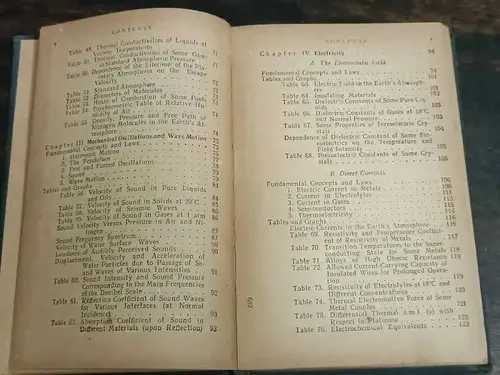 CONTENTS
Table 48. Thermal Conductivities of Liquids at
Various Temperatures 71
Table 49. Thermal Conductivities of Some Gases
at Standard Atmospheric Pressure 71
Table 50. Dependence of the Lifetime of the Planetary
Atmospheres on the Escape
Velocity
Table 51. Standard Atmosphere
Table 52. Diameters of Molecules
Table 53. Heats of Combustion of Some Fuels
Table 54. Psychrometric Table of Relative Humidity
of Air
Table 55. Density, Pressure and Free Path of
Nitrogen Molecules in the Earth's Atmosphere
Chapter III Mechanical Oscillations and Wave Motion 75
Fundamental Concepts and Laws
1. Harmonic Motion
2. The Pendulum
3. Free and Forced Oscillations
4. Sound
5. Wave Motion
Tables and Graphs
Table 56. Velocity of Sound in Pure Liquids
and Oils
Table 57. Velocity of Sound in Solids at 20°C
Table 58. Velocity of Seismic Waves
Table 59. Velocity of Sound in Gases at 1 atm
Sound Velocity Versus Pressure in Air and Nitrogen
Sound Frequency Spectrum
Velocity of Water Surface Waves
Loudness of Audibly Perceived Sounds
Displacement, Velocity and Acceleration of
Water Particles due to Passage of Sound
Waves of Various Intensities
Table 60. Sound Intensity and Sound Pressure
Corresponding to the Main Frequencies
of the Decibel Scale
Table 61. Reflection Coefficient of Sound Waves
for Various Interfaces (at Normal
Incidence) 92
Table 62. Absorption Coefficient of Sound in
Different Materials (upon Reflection) 93
CONTENTS
Chapter IV Electricity 94
A. The Electrostatic Field
Fundamental Concepts and Laws
Tables and Graphs
Table 63. Electric Field in the Earth's Atmosphere
Table 64. Insulating Materials
Table 65. Dielectric Constants of Some Pure Liquids
Table 66. Dielectric Constants of Gases at 18°C
and Normal Pressure
Table 67. Some Properties of Ferroelectric Crystals
Dependence of Dielectric Constant of Some Ferroelectrics
on the Temperature and
Field Intensity
Table 68. Piezoelectric Constants of Some Crystals
B. Direct Currents
Fundamental Concepts and Laws
1. Electric Current in Metals
2. Current in Electrolytes
3. Current in Gases
4. Semiconductors
5. Thermoelectricity
Tables and Graphs
Electric Currents in the Earth's Atmosphere
Table 69. Resistivity and Temperature Coefficient
of Resistivity of Metals
Table 70. Transition Temperature to the Superconducting
State for Some Metals
Table 71. Alloys of High Ohmic Resistance
Table 72. Allowed Current Carrying Capacity of
Insulated Wires for Prolonged Operation
Table 73. Resistivity of Electrolytes at 18°C and
Different Concentrations
Table 74. Thermal Electromotive Force of Some
Metal Couples
Table 75. Differential Thermal e.m.f. (α) with
Respect to Platinum 122
Table 76. Electrochemical Equivalents 123